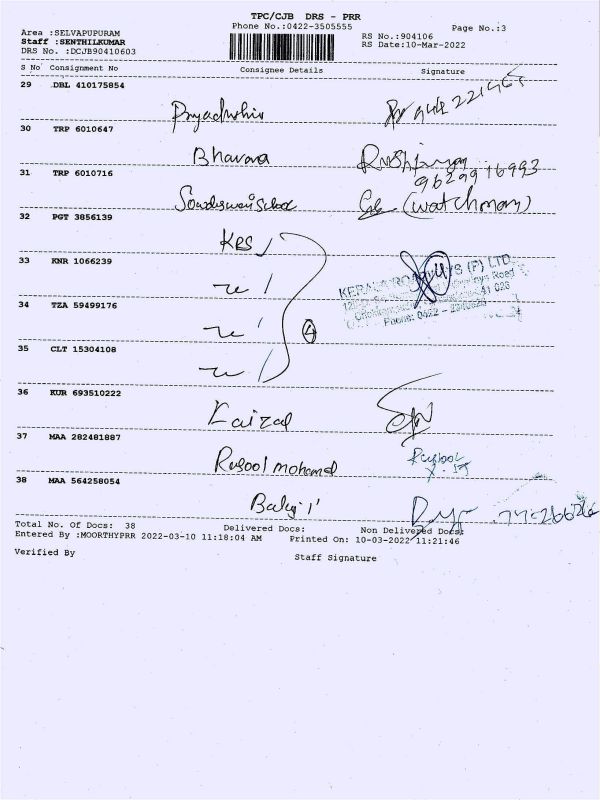 TPC/CJB DRS - PRR
Phone No.:0422-3505555
Page No.:3
Area :SELVAPUPURAM
Staff :SENTHILKUMAR
DRS No. :DCJB90410603
RS No.:904106
RS Date:10-Mar-2022
S No Consignment No Consignee Details Signature
29 DBL 410175854
30 TRP 6010647
Bhavana
31 TRP 6010716
9629916993
School (watchman)
32 PGT 3856139
KRS
33 KNR 1066239
KERALA ROADWAYS (P) LTD
34 TZA 59499176
Phone: 0422 -
4
35 CLT 15304108
36 KUR 693510222
Faizal
37 MAA 282481887
Rasool mohamed
38 MAA 564258054
Balaji
Total No. Of Docs: 38 Delivered Docs: Non Delivered Docs:
Entered By :MOORTHYPRR 2022-03-10 11:18:04 AM Printed On: 10-03-2022 11:21:46
Verified By Staff Signature